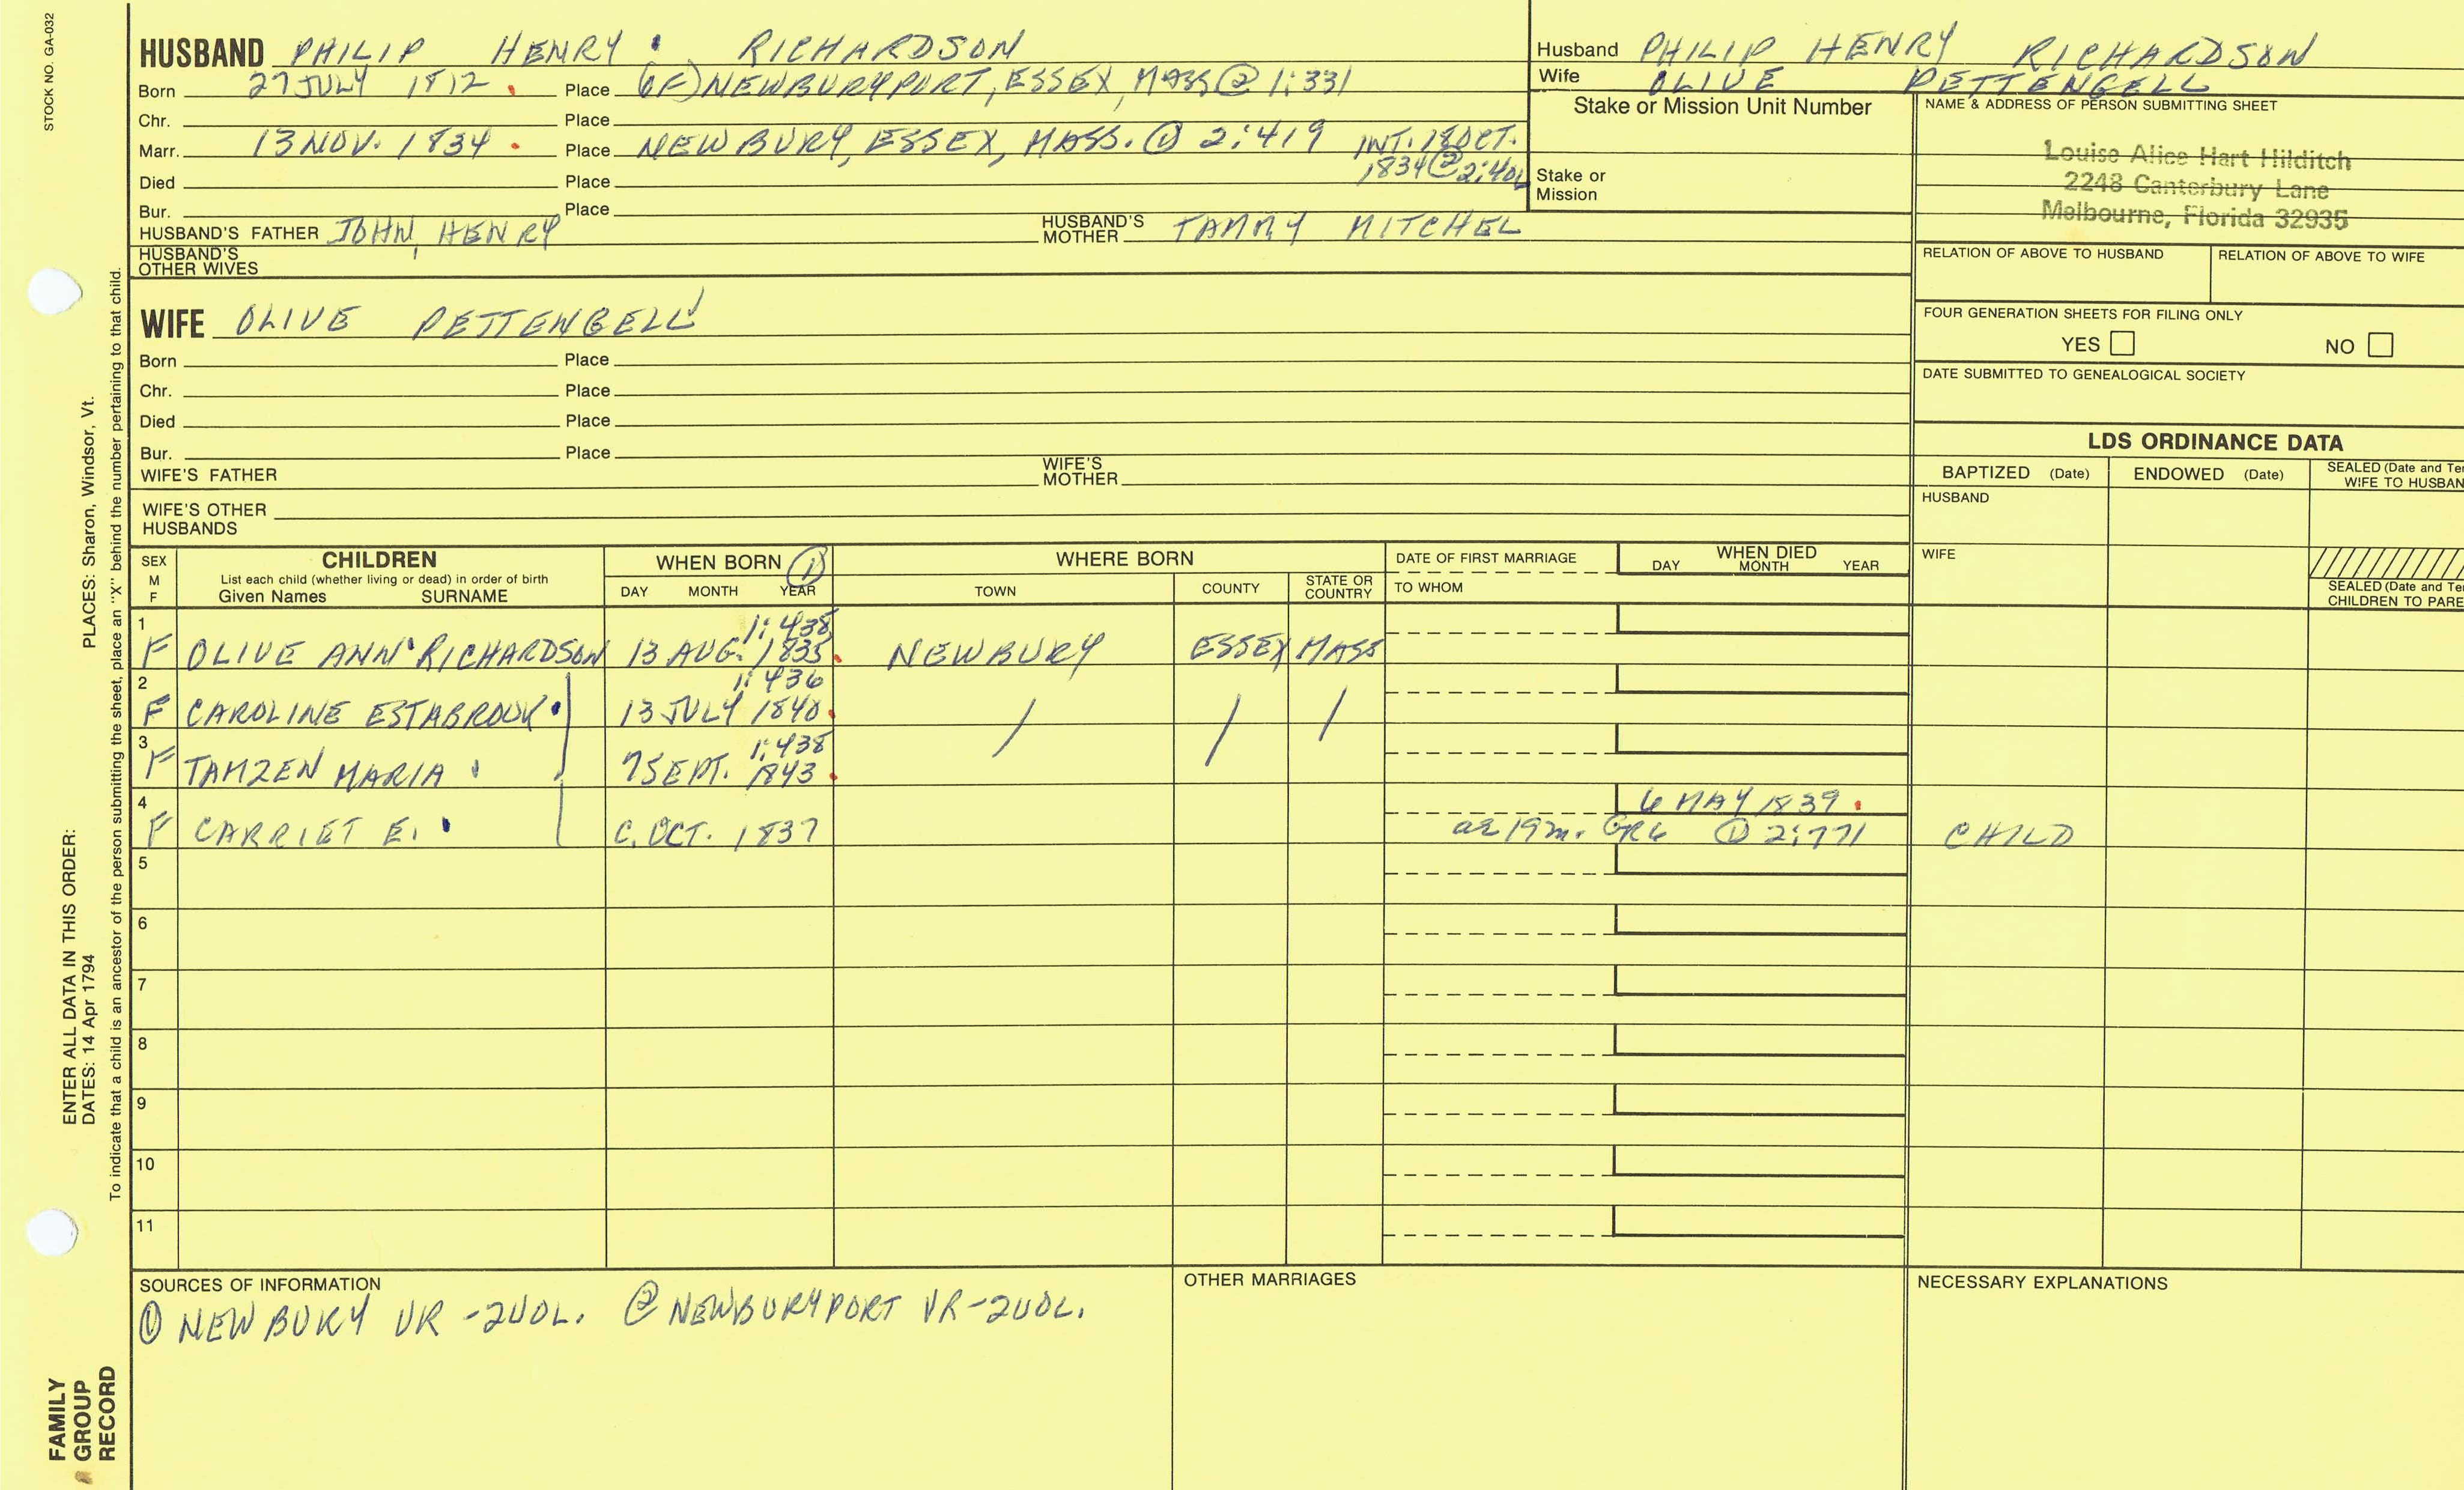 STOCK NO. GA-032
HUSBAND PHILIP HENRY RICHARDSON
Born 27 JULY 1812. Place (OF) NEWBURYPORT, ESSEX, MASS ② 1:331
Chr. Place
Marr. 13 NOV. 1834. Place NEWBURY, ESSEX, MASS. ① 2:419 INT. 18 OCT.
1834 ② 2:401
Died Place
Bur. Place
HUSBAND'S FATHER JOHN, HENRY HUSBAND'S MOTHER TAMMY MITCHEL
HUSBAND'S OTHER WIVES
Husband PHILIP HENRY RICHARDSON
Wife OLIVE PETTENGELL
Stake or Mission Unit Number
Stake or Mission
NAME & ADDRESS OF PERSON SUBMITTING SHEET
Louise Alice Hart Hilditch
2248 Canterbury Lane
Melbourne, Florida 32935
RELATION OF ABOVE TO HUSBAND RELATION OF ABOVE TO WIFE
FOUR GENERATION SHEETS FOR FILING ONLY
YES NO
DATE SUBMITTED TO GENEALOGICAL SOCIETY
WIFE OLIVE PETTENGELL
Born Place
Chr. Place
Died Place
Bur. Place
WIFE'S FATHER WIFE'S MOTHER
WIFE'S OTHER HUSBANDS
LDS ORDINANCE DATA
BAPTIZED (Date) ENDOWED (Date) SEALED (Date and Te
WIFE TO HUSBAN
HUSBAND
WIFE
SEALED (Date and Te
CHILDREN TO PARE
SEX M F
CHILDREN
List each child (whether living or dead) in order of birth
Given Names SURNAME
WHEN BORN ①
DAY MONTH YEAR
WHERE BORN
TOWN COUNTY STATE OR COUNTRY
DATE OF FIRST MARRIAGE
TO WHOM
WHEN DIED
DAY MONTH YEAR
1 1:438
F OLIVE ANN RICHARDSON 13 AUG. 1835. NEWBURY ESSEX MASS
2 1:436
F CAROLINE ESTABROOK 13 JULY 1840. / / /
3 1:438
F TAMZEN MARIA 7 SEPT. 1843.
4 6 MAY 1839.
F CARRIET E. C. OCT. 1837 ae 19m. GR6 ① 2:771 CHILD
5
6
7
8
9
10
11
SOURCES OF INFORMATION
① NEWBURY VR - 2 VOL. ② NEWBURYPORT VR - 2 VOL.
OTHER MARRIAGES
NECESSARY EXPLANATIONS
ENTER ALL DATA IN THIS ORDER:
DATES: 14 Apr 1794 PLACES: Sharon, Windsor, Vt.
To indicate that a child is an ancestor of the person submitting the sheet, place an "X" behind the number pertaining to that child.
FAMILY
GROUP
RECORD